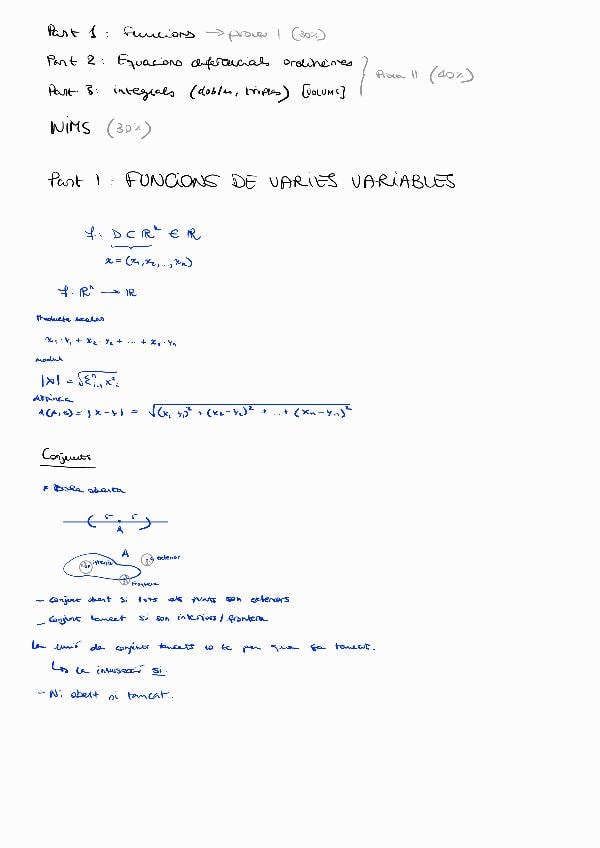 Part 1: Funcions → prova I (30%)
Part 2: Equacions diferencials ordinàries
Part 3: integrals (dobles, triples) [VOLUMS]
Prova II (40%)
NIMS (30%)
Part 1: FUNCIONS DE VARIES VARIABLES
f: D ⊂ ℝⁿ ∈ ℝ
x = (x₁, x₂, ..., xₙ)
f: ℝⁿ → ℝ
Producte escalar
x₁·y₁ + x₂·y₂ + ... + xₙ·yₙ
mòdul
|x| = √(Σⁿᵢ₌₁ xᵢ²)
distància
= |x-y| = √((x₁ y₁)² + (x₂-y₂)² + ... + (xₙ-yₙ)²)
Conjunts
* Bola oberta
r r
A
A
interior
exterior
frontera
- Conjunt obert si tots els punts son exteriors
- Conjunt tancat si son interiors/frontera
La unió de conjunts tancats no té per que ser tancat.
↳ la intersecció si.
- Ni obert ni tancat.